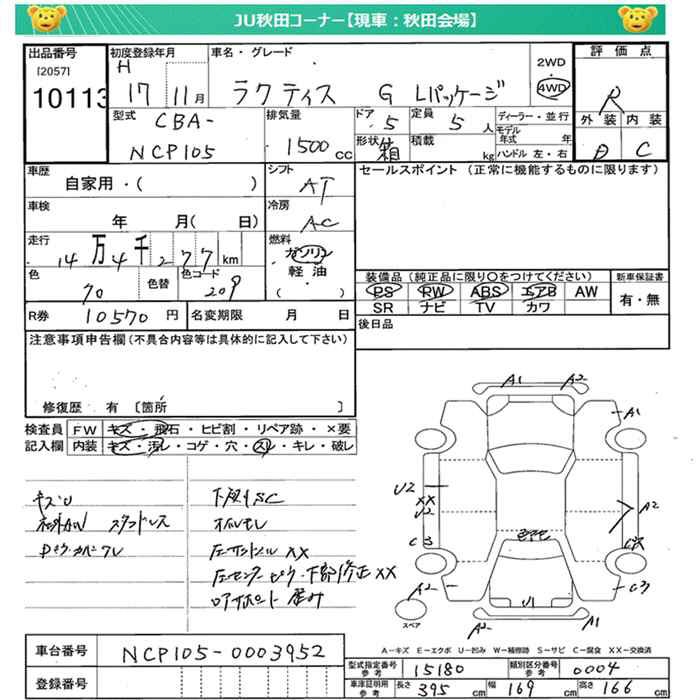 JU秋田コーナー【現車：秋田会場】
出品番号
[2057]
10113
初度登録年月
H
17 11月
車名・グレード
ラクティス G Lパッケージ
2WD
4WD
評価点
R
外装 内装
D C
型式
CBA-
NCP105
排気量
1500cc
ドア
5
形状
箱
定員
5人
積載
kg
ディーラー・並行
モデル年式 年
ハンドル 左・右
車歴
自家用・( )
シフト
AT
セールスポイント (正常に機能するものに限ります)
車検
年 月( 日)
冷房
AC
走行
14万4千277km
燃料
ガソリン
軽油
( )
色
70
色替
色コード
209
装備品 (純正品に限り〇をつけてください)
PS RW ABS エアB AW
SR ナビ TV カワ
新車保証書
有・無
R券 10570円
名変期限 月 日
後日品
注意事項申告欄(不具合内容等は具体的に記入して下さい)
修復歴 有 〔箇所 〕
検査員
記入欄
FW キズ・飛石・ヒビ割・リペア跡・×要
内装 キズ・汚レ・コゲ・穴・スレ・キレ・破レ
キズU
スタッドレス
下廻りSC
オイルモレ
XX
XX
A1 A2
A1
U2
XX
U2
A2
C3
A2
C3
U1
A2
A1
スペア
A－キズ E－エクボ U－凹み W－補修跡 S－サビ C－腐食 XX－交換済
車台番号 NCP105-0003952
登録番号
型式指定番号
参考
15180
類別区分番号
参考
0004
車庫証明用
参考
長さ 395cm
幅 169cm
高さ 166cm